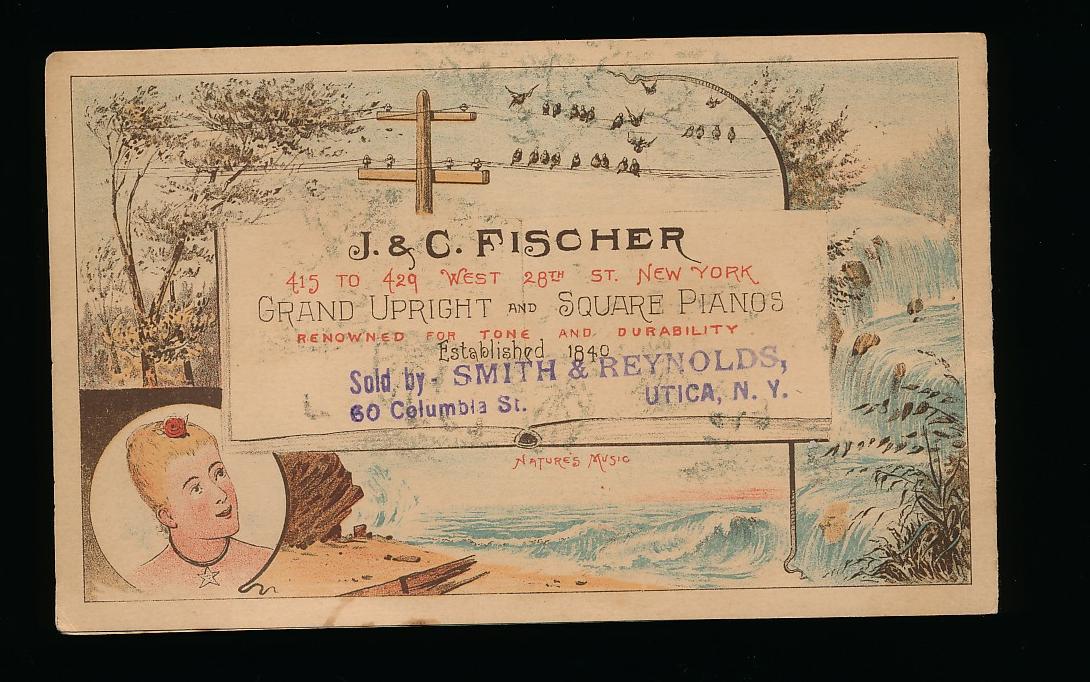 J. & C. FISCHER
415 TO 429 WEST 28TH ST. NEW YORK
GRAND UPRIGHT AND SQUARE PIANOS
RENOWNED FOR TONE AND DURABILITY
Established 1840
Sold by SMITH & REYNOLDS,
60 Columbia St. UTICA, N. Y.
NATURE'S MUSIC